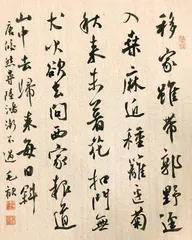 移家雖帶郭野徑
入桑麻近種籬邊菊
秋來未著花扣門無
犬吠欲去問西家報道
山中去歸來每日斜
唐皎然尋陸鴻漸不遇